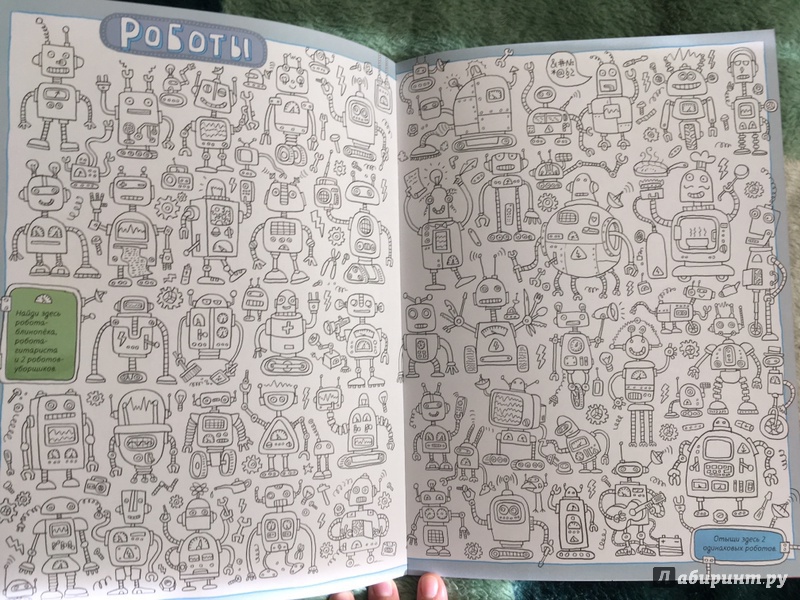 Роботы
&@№
*@§2
Найди здесь
робота-
блинопёка,
робота-
гитариста
и 2 роботов-
уборщиков.
Отыщи здесь 2
одинаковых роботов.
Лабиринт.ру